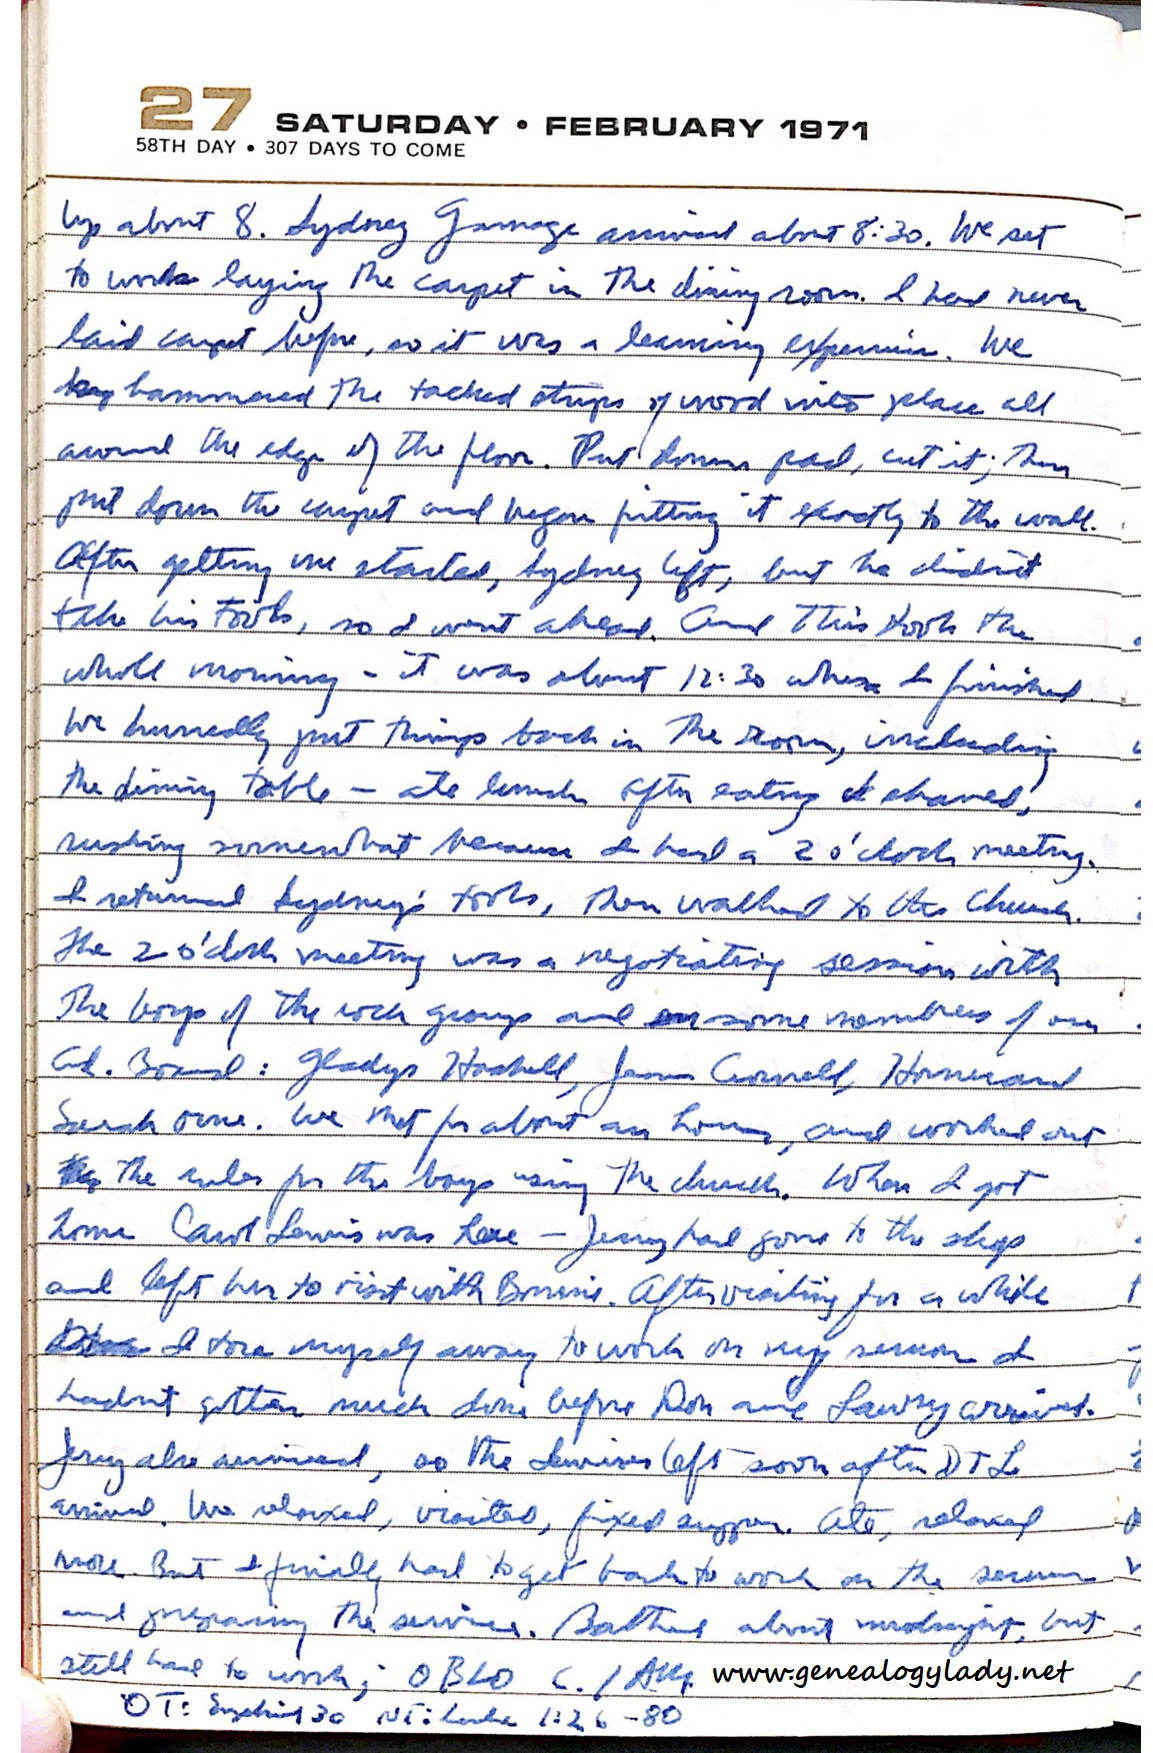 27 SATURDAY • FEBRUARY 1971
58TH DAY • 307 DAYS TO COME
Up about 8. Sydney Gamage arrived about 8:30. We set
to work laying the carpet in the dining room. I had never
laid carpet before, so it was a learning experience. We
hammered the tacked strips of wood into place all
around the edge of the floor. Put down pad, cut it; then
put down the carpet and began fitting it exactly to the wall.
After getting me started, Sydney left, but he didn't
take his tools, so I went ahead. And this took the
whole morning – it was about 12:30 when I finished.
We hurriedly put things back in the room, including
the dining table – ate lunch after eating I shaved,
rushing somewhat because I had a 2 o'clock meeting.
I returned Sydney's tools, then walked to the Church.
The 2 o'clock meeting was a negotiating session with
the boys of the rock group and some members of our
Ad. Board: Gladys Haskell, Jean Cornell, Homer and
Sarah Orne. We met for about an hour, and worked out
the rules for the boys using the church. When I got
home Carol Lewis was here – Jerry had gone to the shop
and left her to visit with Bonnie. After visiting for a while
I tore myself away to work on my sermon I
hadn't gotten much done before Don and Lawry arrived.
Jerry also arrived, so the Lewises left soon after D + L
arrived. We relaxed, visited, fixed supper. Ate, relaxed
more. But I finally had to get back to work on the sermon
and preparing the service. Bathed about midnight, but
still had to work; OBLO
www.genealogylady.net
OT: Ezekiel 30 NT: Luke 1:26-80